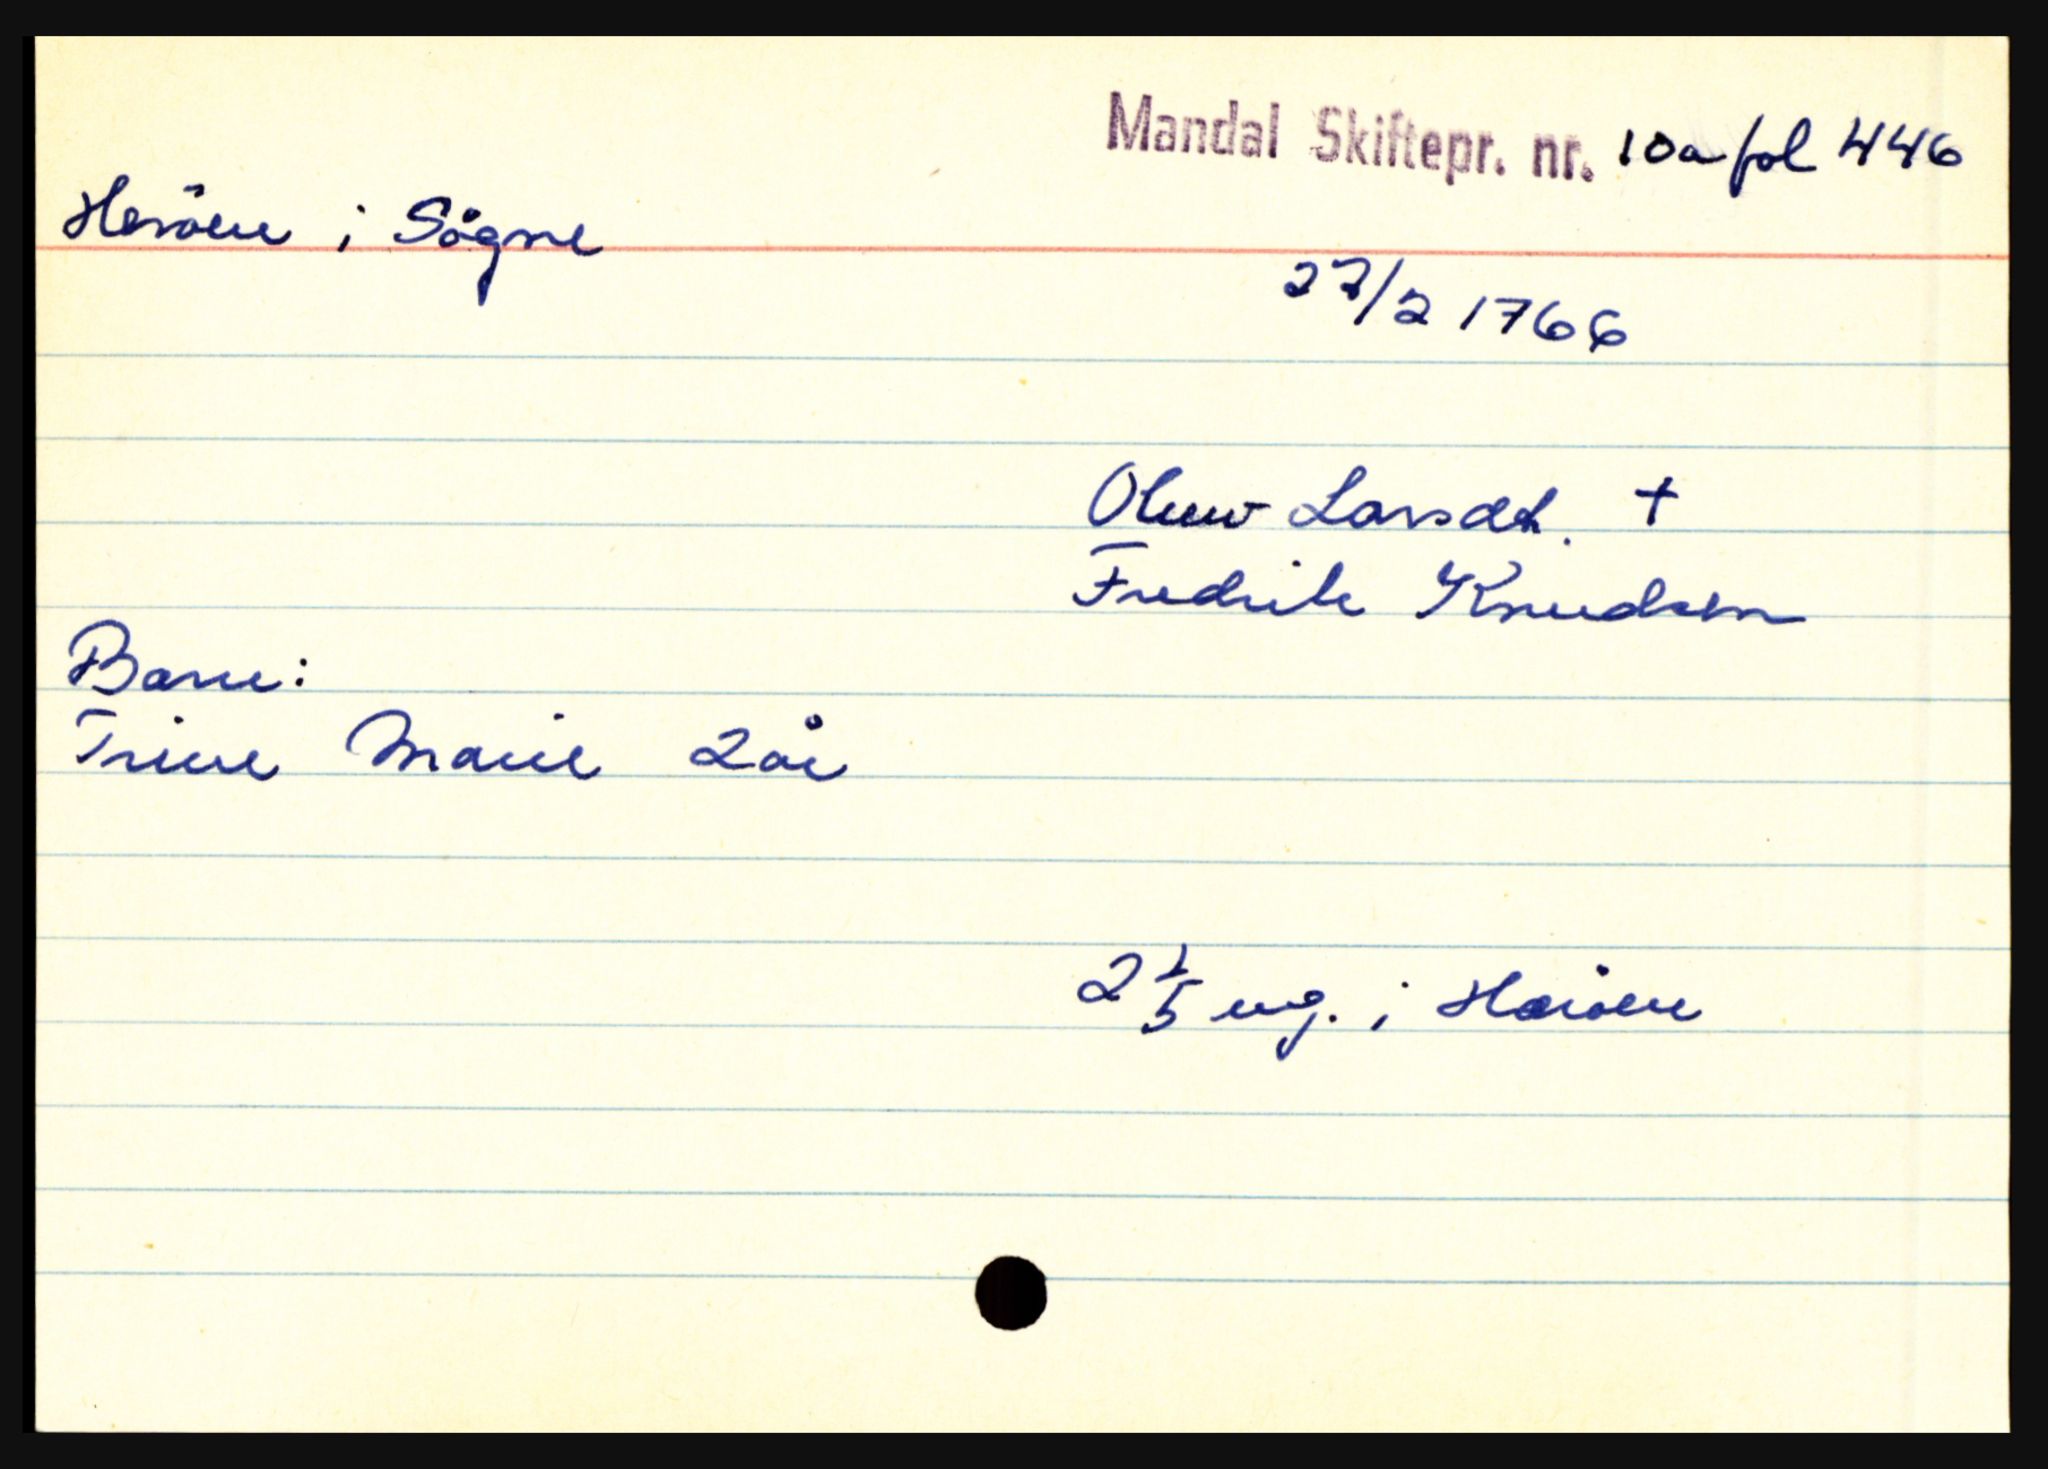 Mandal Skiftepr. nr. 10a fol 446
Heröen i Sögne
27/2 1766
Oluv Larsdt. †
Fredrik Knudsen
Barn:
Trine Marie 2 år
2 1/5 eng. i Heröen